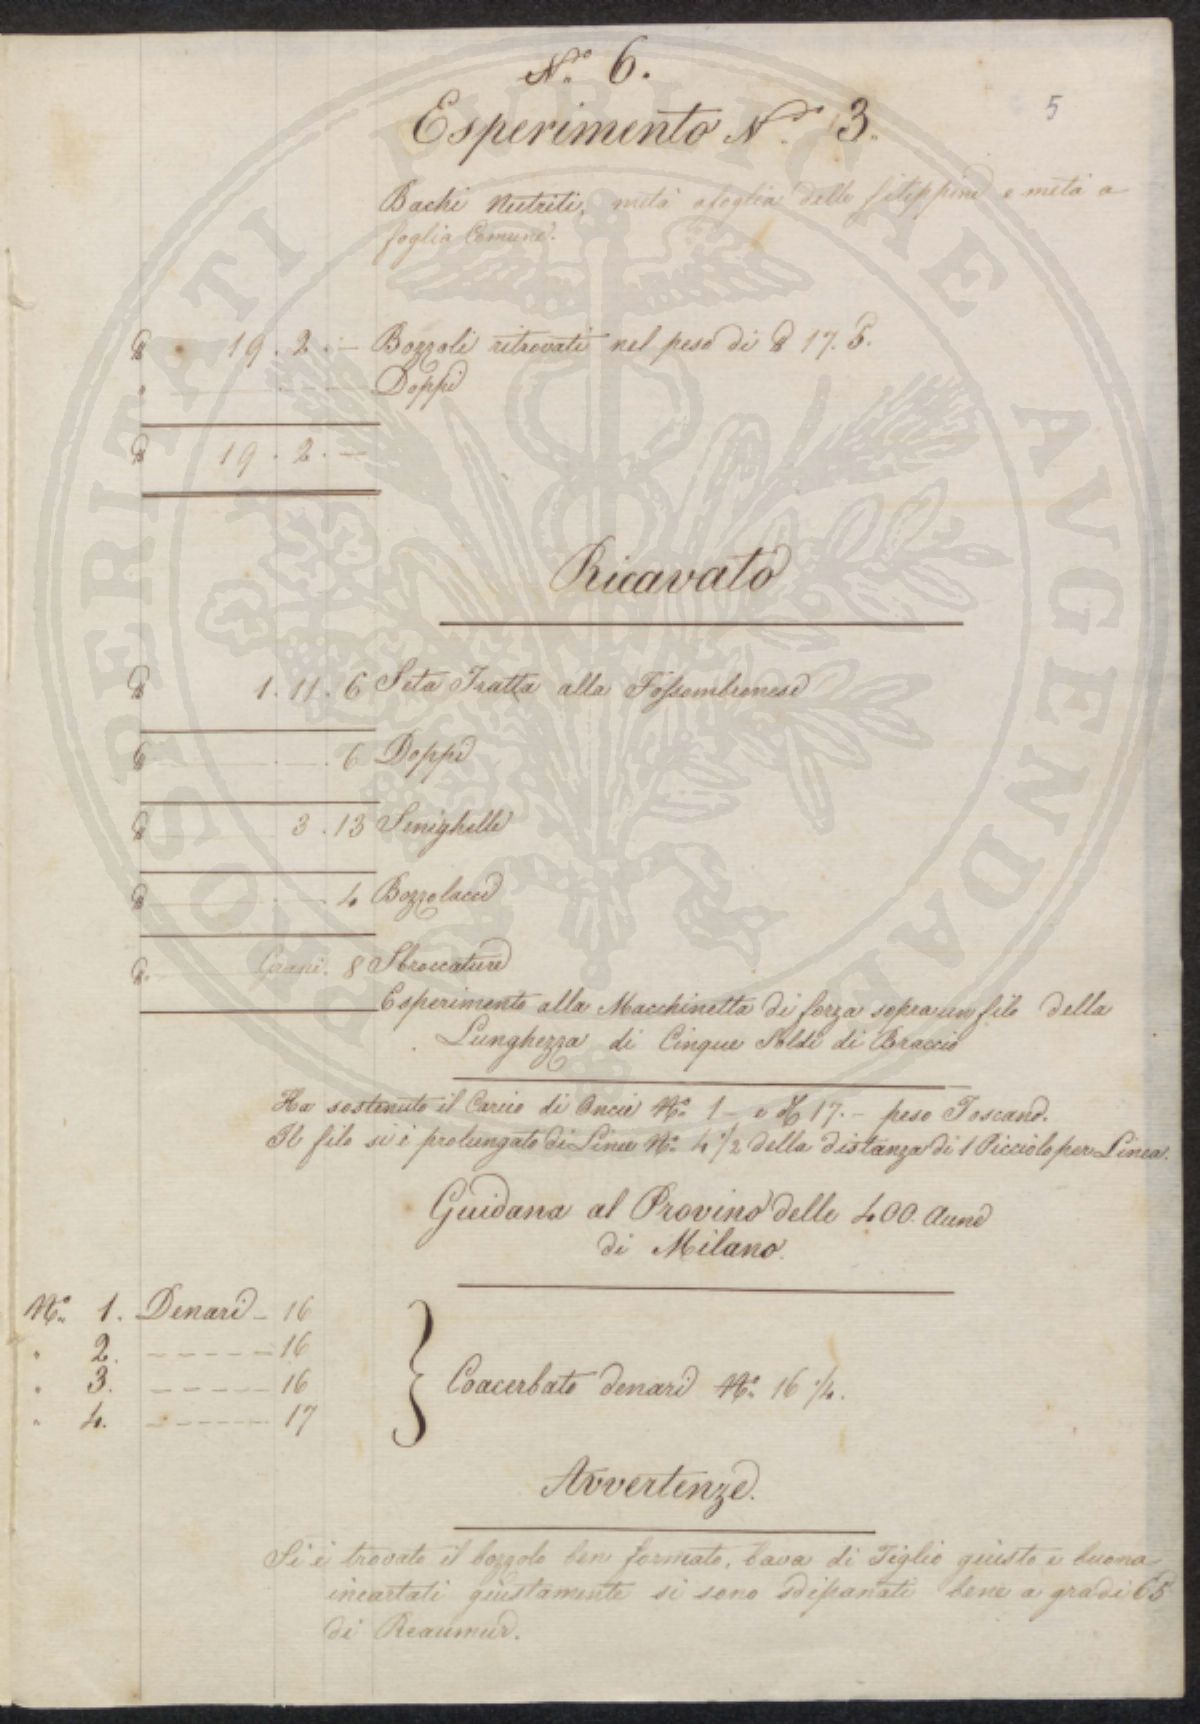 5
N.º 6.
Esperimento N.º 3.
Bachi Nutriti, metà a foglia delle filippine e metà a
foglia Comune.
19 . 2 . — Bozzoli ritrovati nel peso di 17. 5.
" — — Doppi
19 . 2 . —
Ricavato
1 . 11 . 6 Seta Tratta alla Fossombronese
6 Doppi
3 . 13 Sinighelle
4 Bozzolacci
Grani. 8 Sbroccature
Esperimento alla Macchinetta di forza sopra un filo della
Lunghezza di Cinque Soldi di Braccio
Ha sostenuto il Carico di Oncie N.º 1 — e 17. — peso Toscano.
Il filo si è prolungato di Linee N.º 4 1/2 della distanza di 1 Picciolo per Linea.
Guidana al Provino delle 400. Aune
di Milano.
N.º 1. Denari — 16
" 2. — — — — — 16
" 3. — — — — — 16
" 4. — — — — — 17
Coacerbato denari N.º 16 1/4.
Avvertenze.
Si è trovato il bozzolo ben formato, bava di Tiglio giusto e buona
incartati giustamente si sono sdipanati bene a gradi 65
di Reaumur.
PROSPERITATI PUBLICAE AUGENDAE